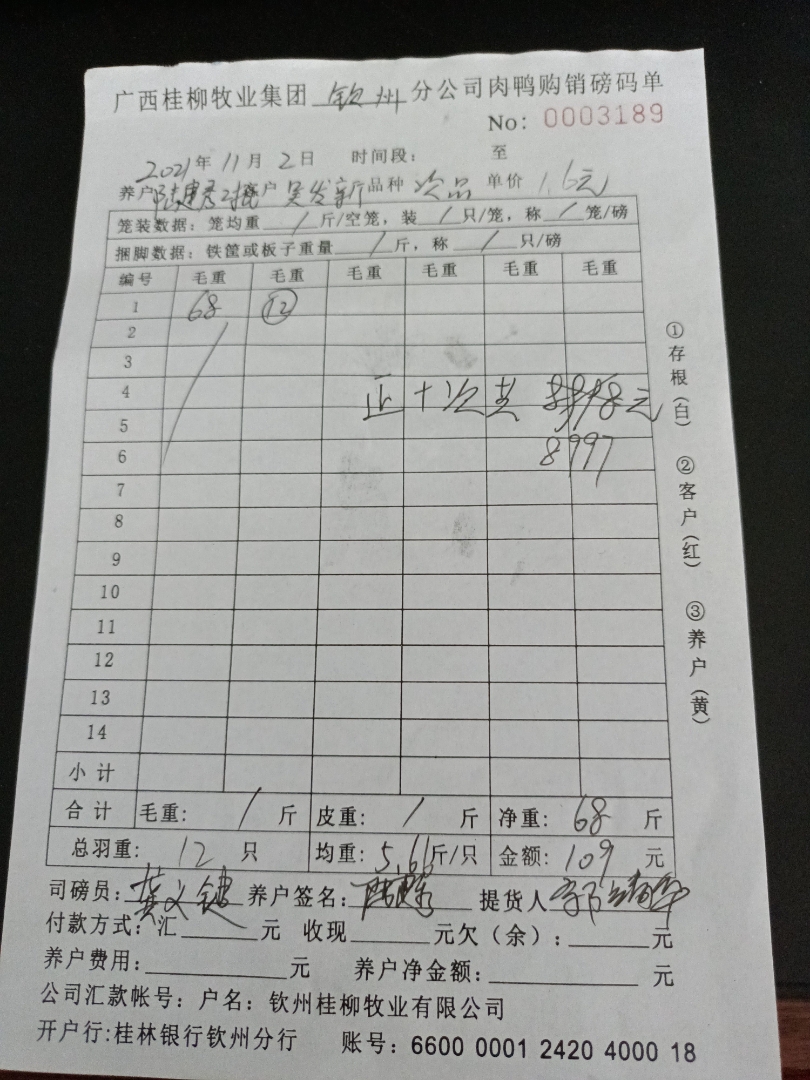 广西桂柳牧业集团 钦州 分公司肉鸭购销磅码单
No: 0003189
2021年11月2日 时间段: 至
养户 客户 吴发新 品种 次品 单价 1.6元
笼装数据: 笼均重 / 斤/空笼, 装 / 只/笼, 称 / 笼/磅
捆脚数据: 铁筐或板子重量 / 斤, 称 / 只/磅
编号 毛重 毛重 毛重 毛重 毛重 毛重
1 68 12
2
3
4
正十次 元
5
6 8997
7
8
9
10
11
12
13
14
小计
合计 毛重: / 斤 皮重: / 斤 净重: 68 斤
总羽重: 12 只 均重: 5.66斤/只 金额: 109 元
司磅员: 养户签名: 提货人
付款方式: 汇 元 收现 元欠(余): 元
养户费用: 元 养户净金额: 元
公司汇款帐号: 户名: 钦州桂柳牧业有限公司
开户行:桂林银行钦州分行 账号: 6600 0001 2420 4000 18
①存根(白) ②客户(红) ③养户(黄)